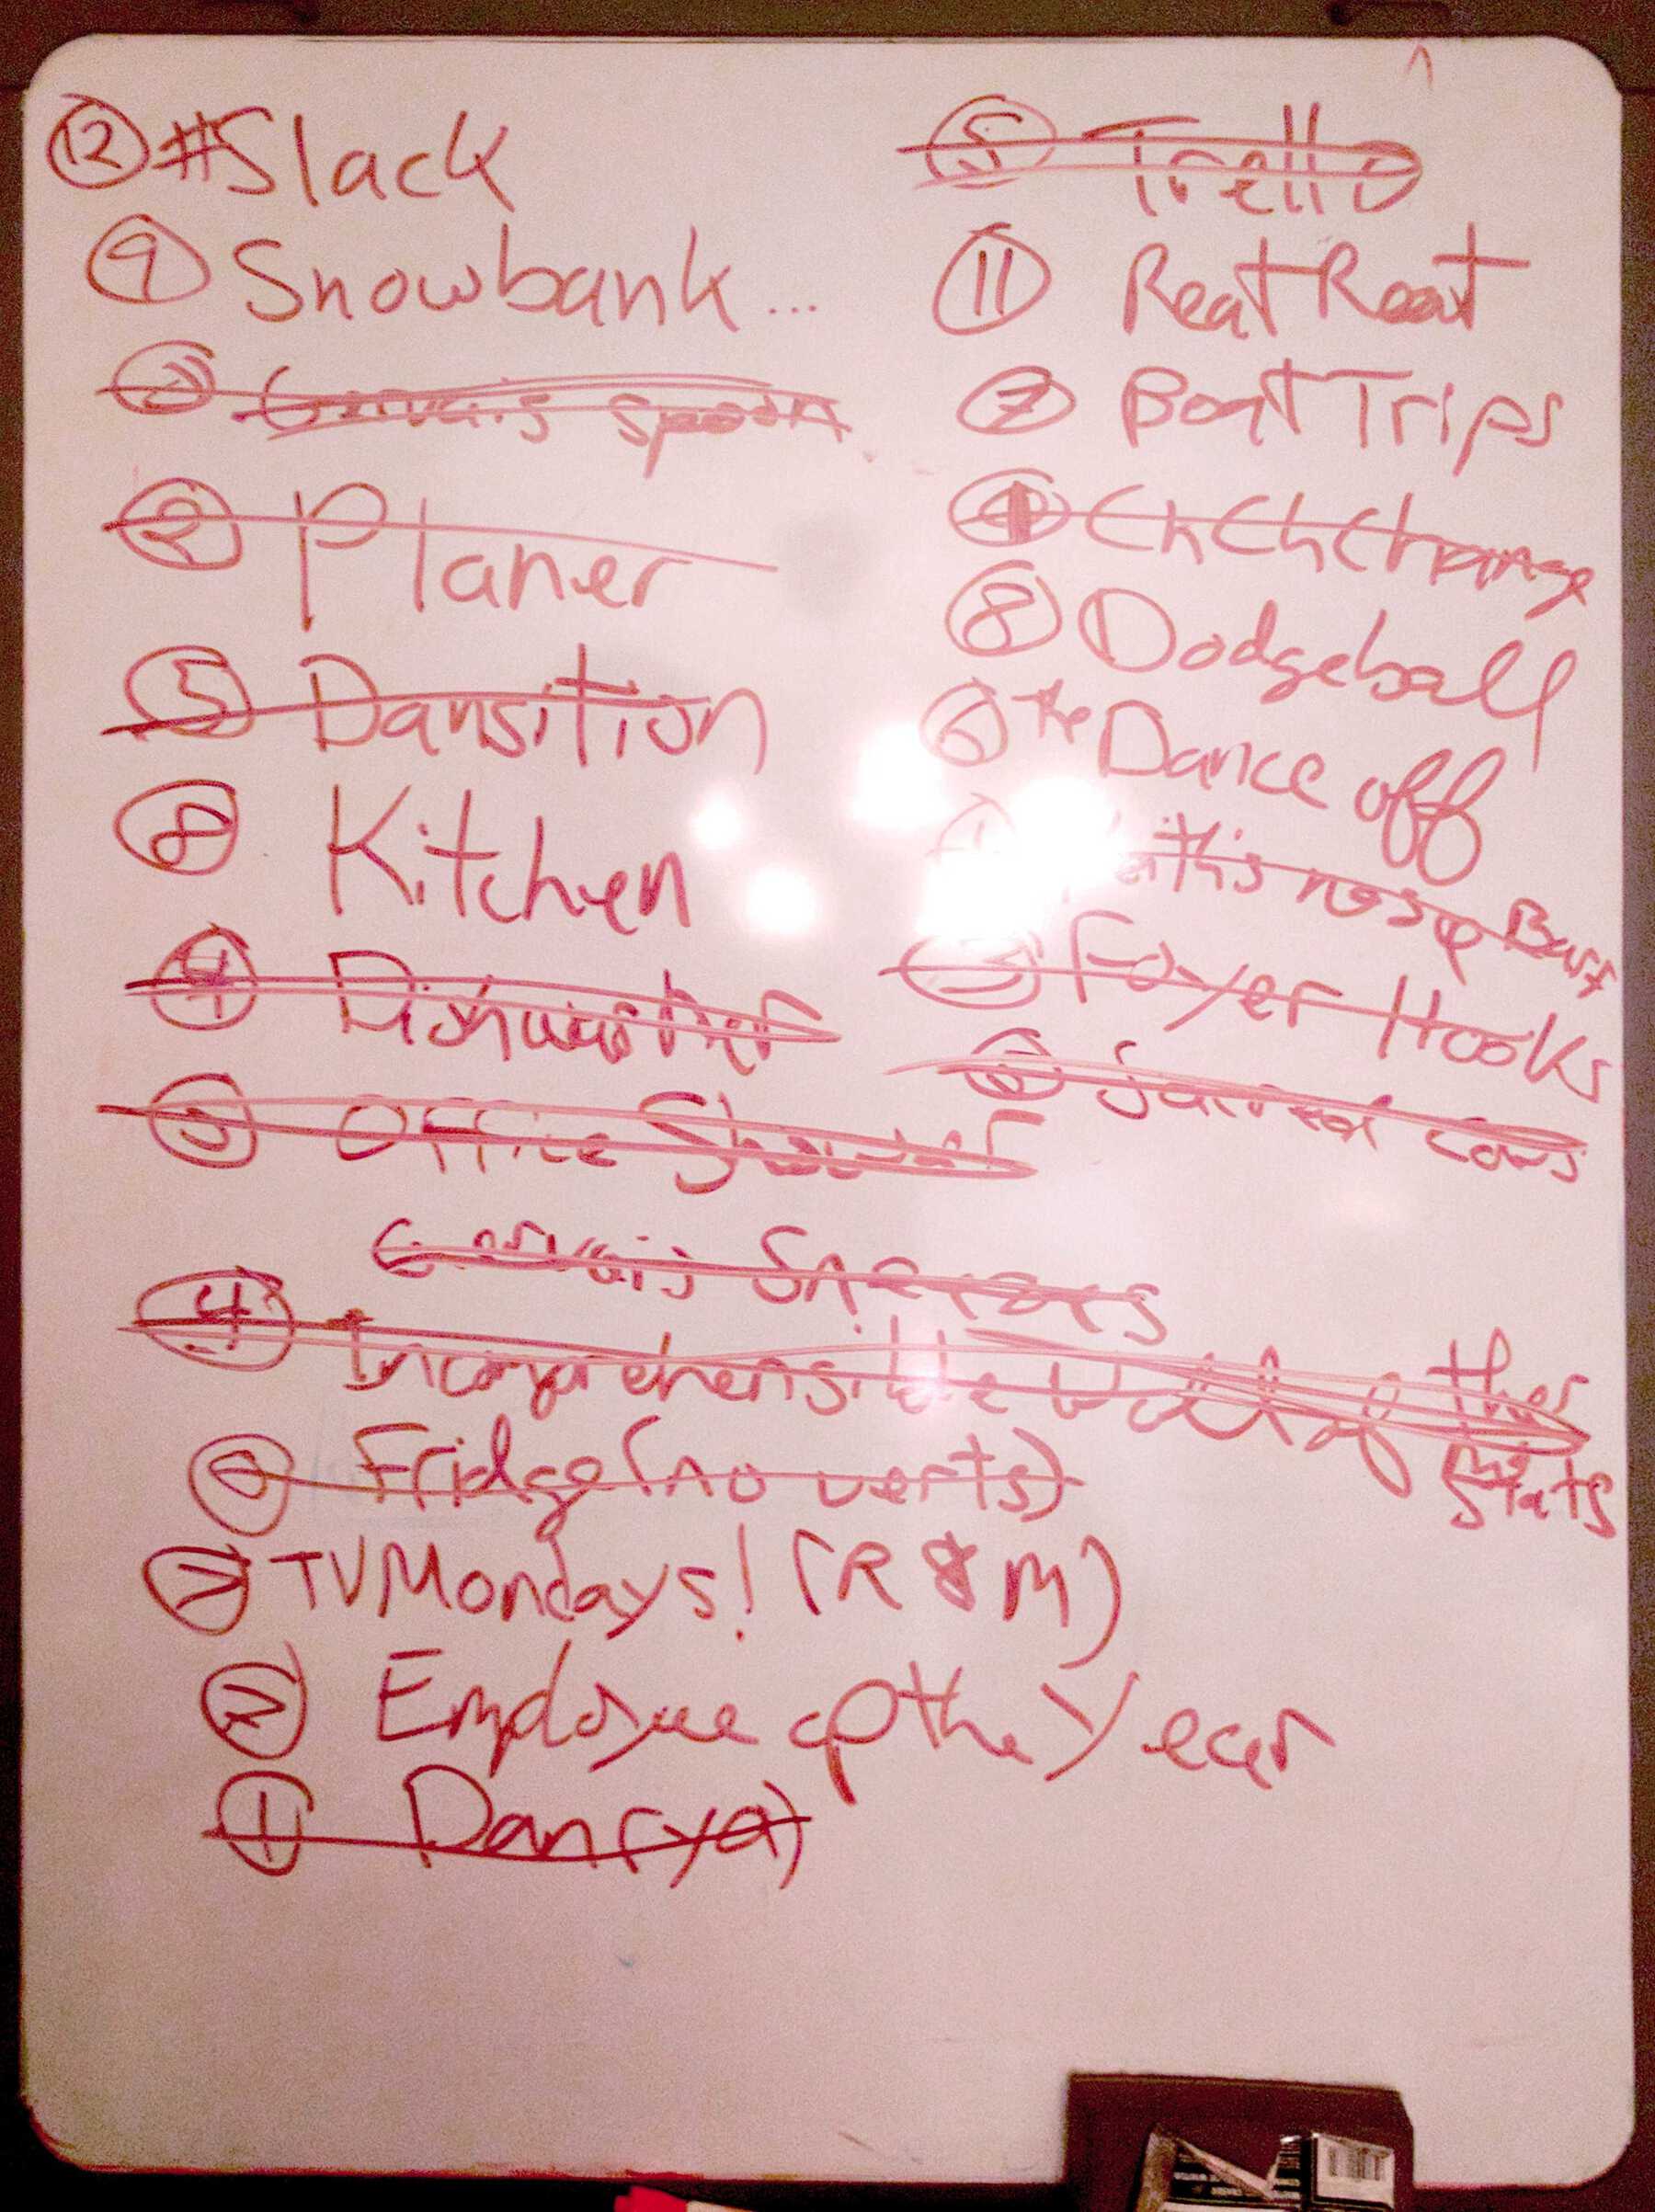 ⑫ #Slack
⑨ Snowbank...
③ Gervais spoon
② Planer
⑤ Dansition
⑧ Kitchen
④ Dishwasher
③ Office Shower
Gervais Sneezes
④ Incomprehensible Wall of
Stats
Fridge (no verts)
⑦ TV Mondays! (R & M)
Employee of the Year
① Dan (ya)
⑤ Trello
⑪ Reat Reat
⑦ Boat Trips
④ Ch Ch Change
⑧ Dodgeball
⑥ the Dance off
nose
Foyer Hooks
Cows